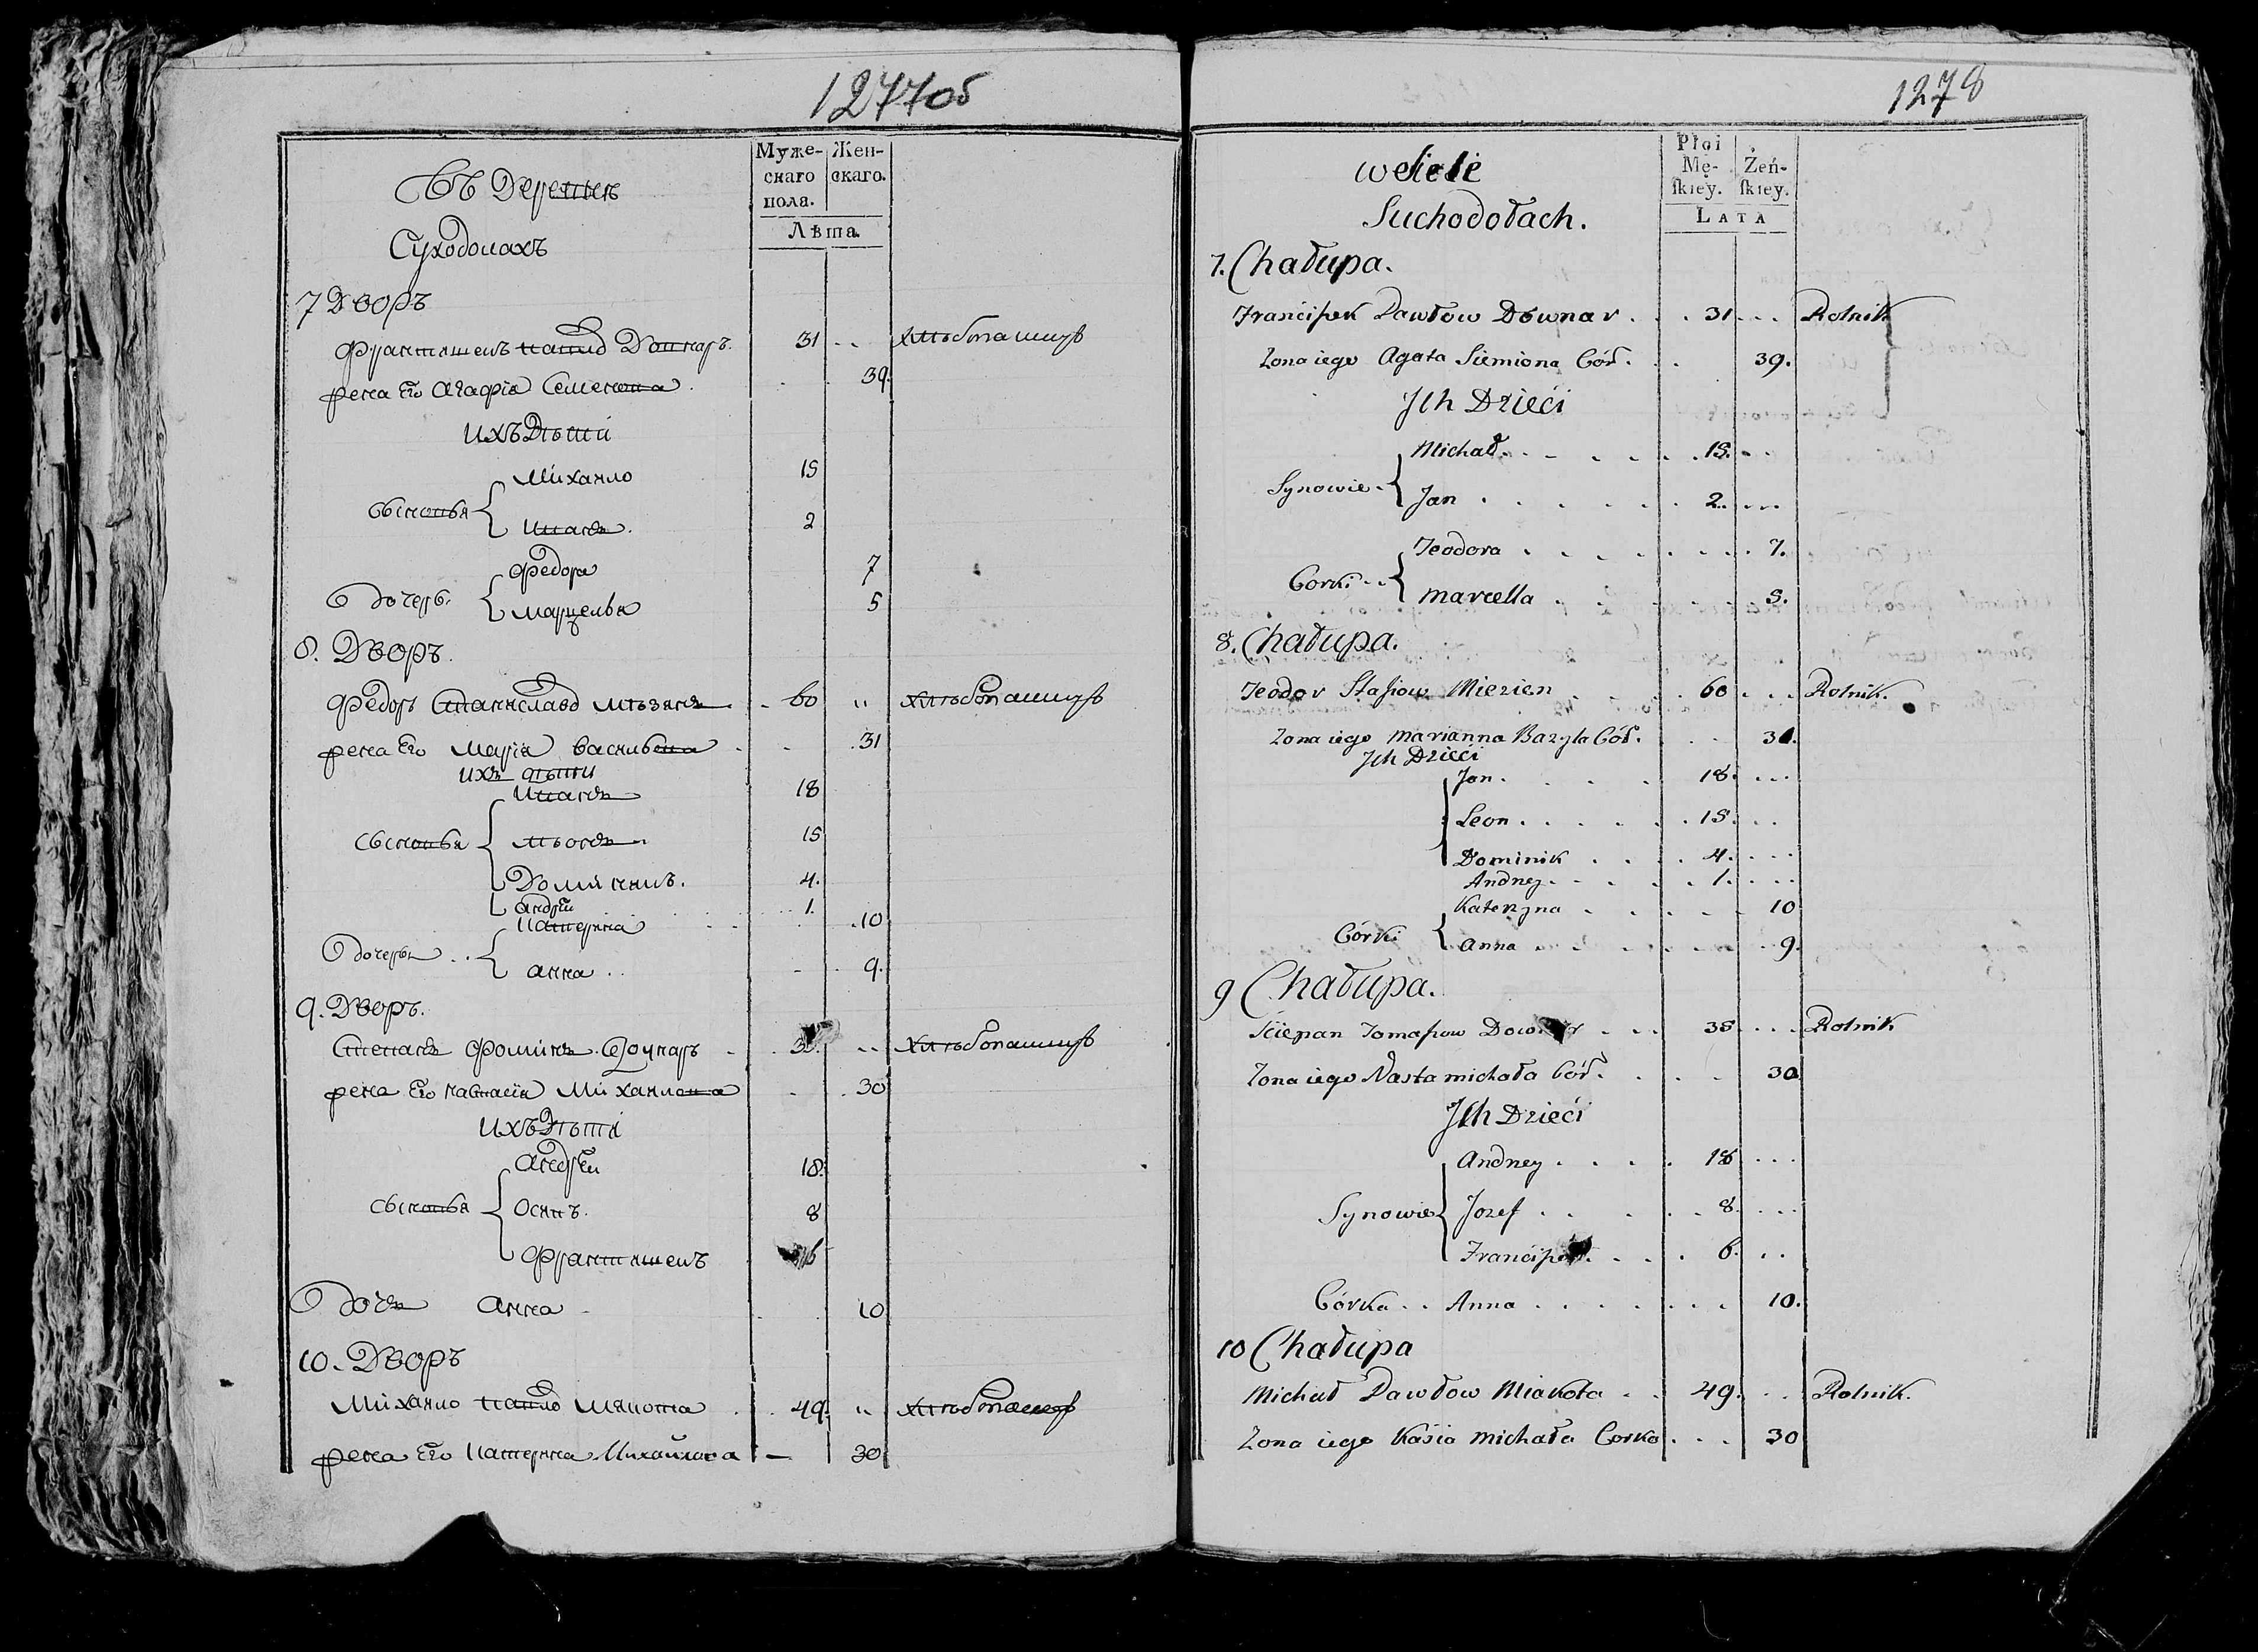 1277об
Въ Деревнѣ
Суходолахъ
Муже-
скаго
пола.
Жен-
скаго.
Лѣта
7 Дворъ
Францишекъ Павлов Довнаръ. 31 . . хлѣбопашецъ
жена Его Агафія Семенова . 39.
ихъ Дѣти
Михайло 15
сыновья Иванъ. 2
Федора 7
дочери. Марцелья 5
8. Дворъ.
Федоръ Станиславов Мѣзянъ . 60 " хлѣбопашецъ
жена Его Марія Васильева . . 31
ихъ дѣти
Иванъ 18
сыновья Лѣонъ 15
Доминикъ. 4.
андрей 1.
Катерина . 10
дочери . . анна . . 9.
9. Дворъ.
Степанъ Фоминъ Доунаръ . хлѣбопашецъ
жена Его настасія Михайлова . 30
ихъ Дѣти
андрей 18.
сыновья Осипъ. 8
Францишекъ 6
дочь Анна 10
10. Дворъ
Михайло Павлов Мякота . 49. " хлѣбопашецъ
жена Его Катерина Михайлова — 30
1278
w Siele
Suchodołach.
Płci
Mę-
ſkiey.
Żeń-
ſkiey.
LATA
7. Chałupa.
Franciſzek Pawłow Downar . . . 31 . . . Rolnik
Zona iego Agata Siemiona Cór. . . 39.
Jch Dzieći
Michał . . . 15. . .
Synowie . Jan . . . 2. . . .
Teodora . . . 7.
Corki . . Marcella . . . 5.
8. Chałupa.
Teodor Staſiow Miezien . . . 60 . . . Rolnik.
Zona iego Marianna Bazyla Cór. . . 31.
Jch Dzieći
Jan . . . 18. . . .
Leon . . . 15. . .
Dominik . . . 4. . . .
Andrzey . . . 1. . . .
Katerzyna . . . 10
Córki Anna . . . 9.
9 Chałupa.
Sciepan Tomaſzow . . . 35 . . . Rolnik
Zona iego Nasta michała Cór. . . 30
Jch Dzieći
Andrzey . . . 18 . . .
Synowie Jozef . . . 8. . . .
6. . .
Córka . . Anna . . . 10.
10 Chałupa
Michał Pawłow Miakota . . 49. . . Rolnik.
Zona iego Kasia michała Corka . . . 30